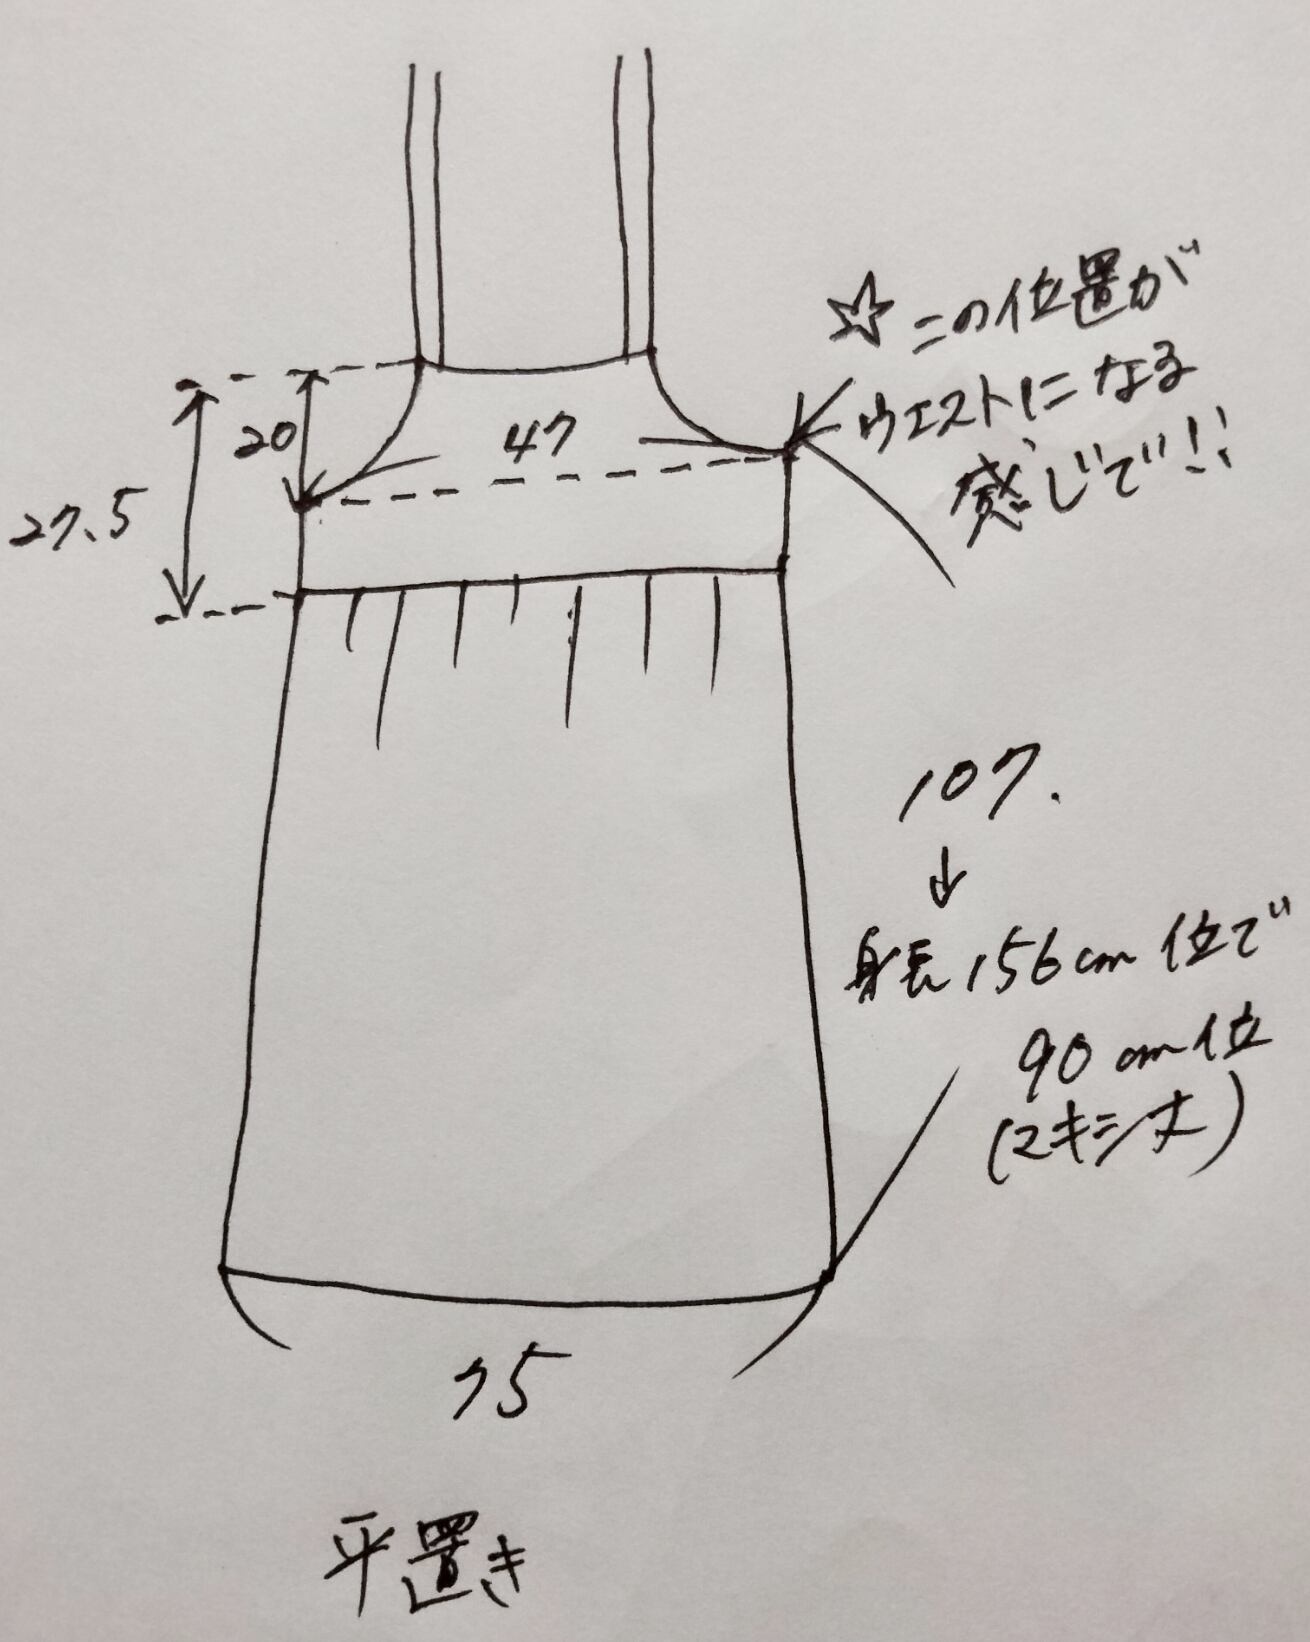 ☆この位置が
ウエストになる
感じで!!
20
47
27.5
107.
↓
身長156cm位で
90cm位
(マキシ丈)
75
平置き